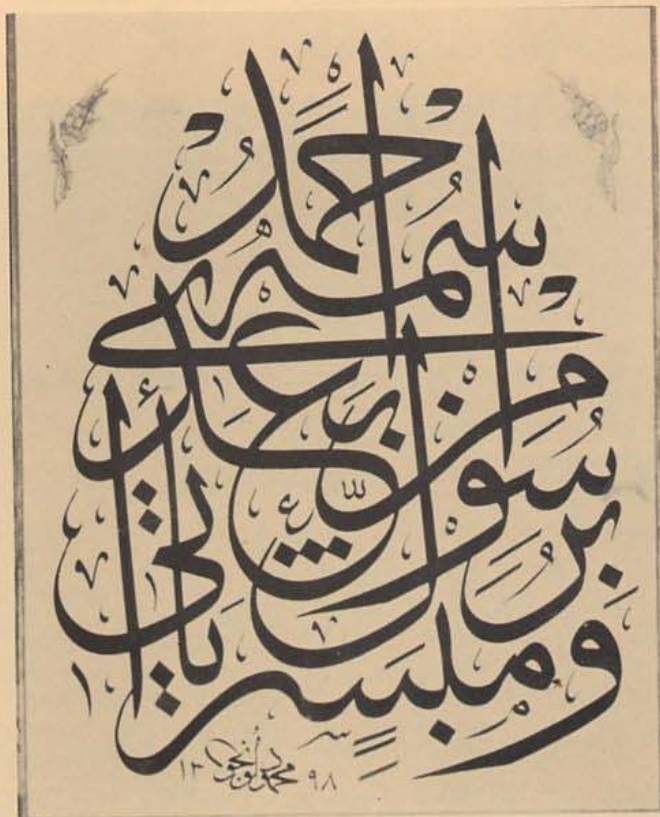 وَمُبَشِّرًا
بِرَسُولٍ يَأْتِي
مِنْ بَعْدِي
اسْمُهُ
أَحْمَدُ
١٣٩٨